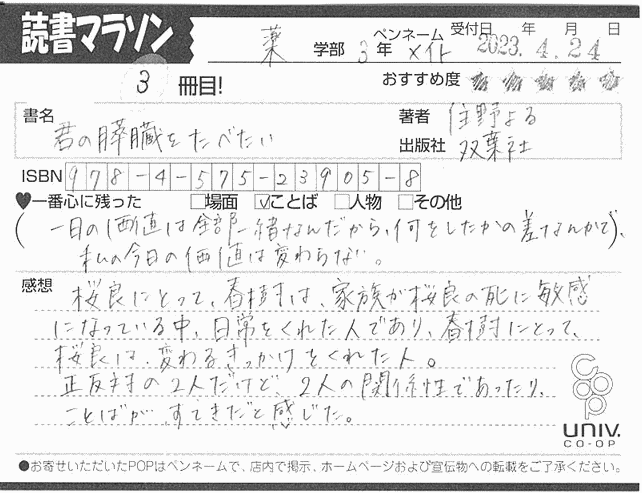 読書マラソン
薬 学部 3 年 ペンネーム メイト 受付日 年 月 日 2023.4.24
3 冊目! おすすめ度
書名 君の膵臓をたべたい
著者 住野よる
出版社 双葉社
ISBN 978-4-575-23905-8
♥一番心に残った □場面 ☑ことば □人物 □その他
(一日の価値は全部一緒なんだから、何をしたかの差なんかで、
私の今日の価値は変わらない。)
感想
桜良にとって、春樹は、家族が桜良の死に敏感
になっている中、日常をくれた人であり、春樹にとって、
桜良は、変わるきっかけをくれた人。
正反対の2人だけど、2人の関係性であったり、
ことばが、すてきだと感じた。
coop
UNIV.
CO-OP
●お寄せいただいたPOPはペンネームで、店内で掲示、ホームページおよび宣伝物への転載をご了承ください。